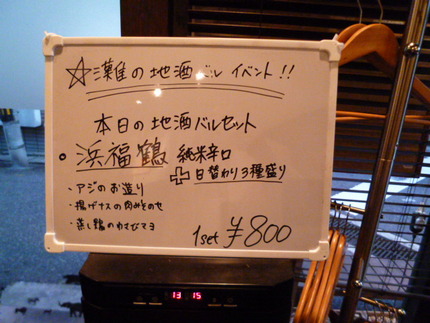 ☆灘の地酒バル イベント!!
本日の地酒バルセット
浜福鶴 純米辛口
+日替わり3種盛り
・アジのお造り
・揚げナスの肉みそのせ
・蒸し鶏のわさびマヨ
1set ¥800
13 15